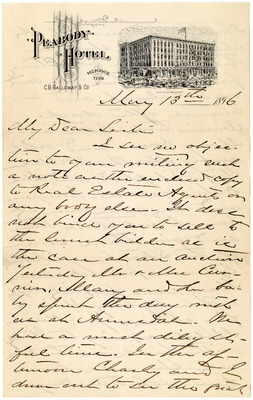 PEABODY
HOTEL
MEMPHIS
TENN
C.B. GALLOWAY & CO
May 13th 1896
My Dear
I see no objec-
tion to your writing such
a note as the enclosed copy
to Real Estate Agents or
any body else. It does
not bind you to sell to
the lowest bidder as is
the case at an auction
Yesterday Mr & Mrs
and ba-
by spent the day with
us at Annesdale. We
had a most delight-
ful time. In the af-
ternoon Charly and I
drove out to see the